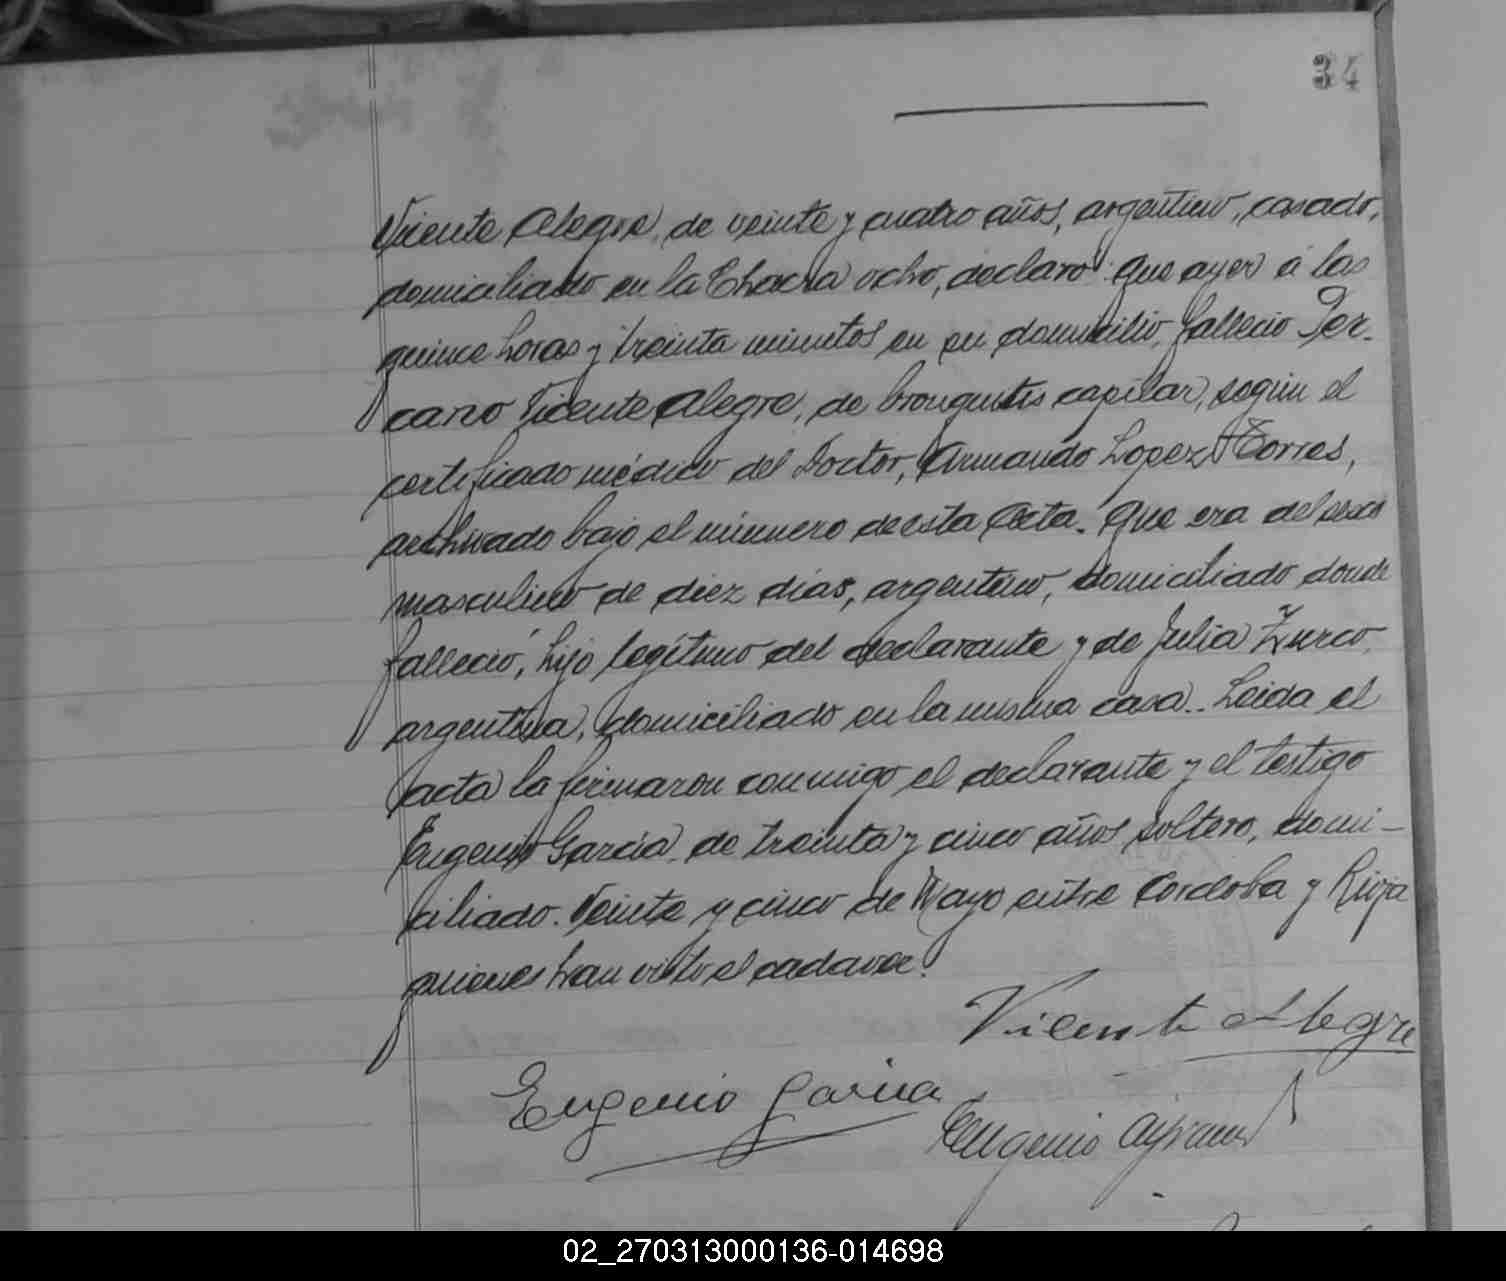 34
Vicente Alegre, de veinte y cuatro años, argentino, casado,
domiciliado en la Chacra ocho, declaró: Que ayer á las
quince horas y treinta minutos en su domicilio, fallecio Per-
cano Vicente Alegre, de bronquitis capilar, según el
certificado médico del Doctor, Armando Lopez Torres,
archivado bajo el número de esta Acta. Que era del sexo
masculino de diez días, argentino, domiciliado donde
falleció, hijo legítimo del declarante y de Julia Zurco,
argentina, domiciliado en la misma casa. Leida el
acta la firmaron conmigo el declarante y el testigo
Eugenio Garcia, de treinta y cinco años, soltero, domi-
ciliado. Veinte y cinco de Mayo entre Cordoba y Rioja
quienes han visto el cadaver.
Vicente Alegre
Eugenio Garcia
Eugenio
02_270313000136-014698